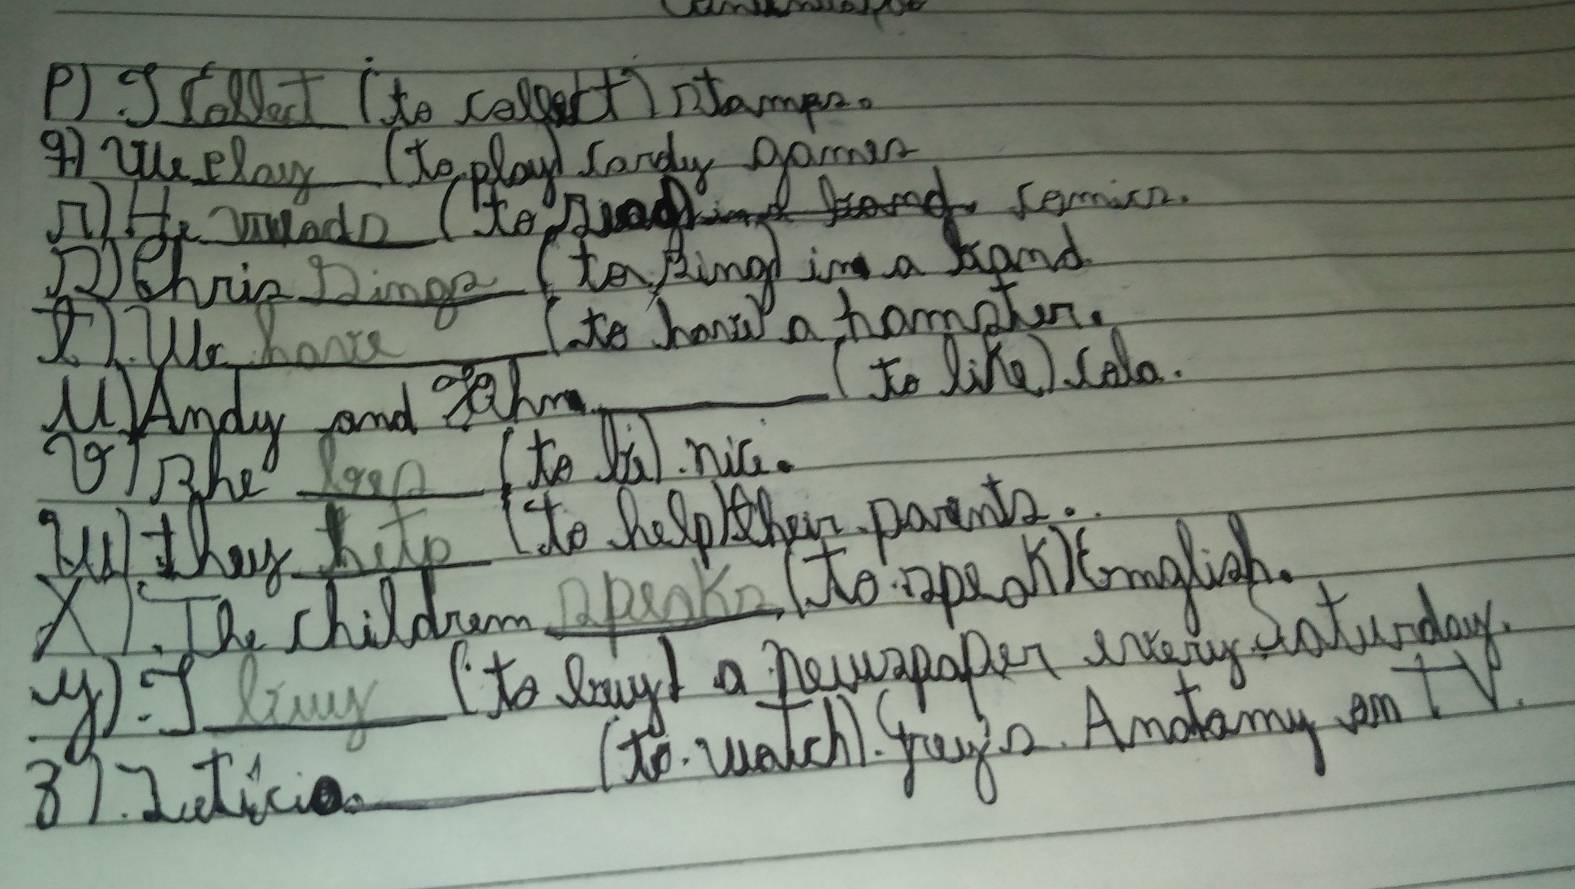 p) I collect (to collect) stamps.
q) We play (to play) cardy games
r) He reads (to read) comics.
s) Chris sings (to sing) in a band
t). We have (to have) a hamster.
u) Andy and John (to like) cola.
v) she (to be). nice.
w) they help (to help) their parents.
x). The children speaks (to speak) English.
y). I buy (to buy) a newspaper every saturday.
z). Letícia (to watch). Grey's Anatamy on TV.